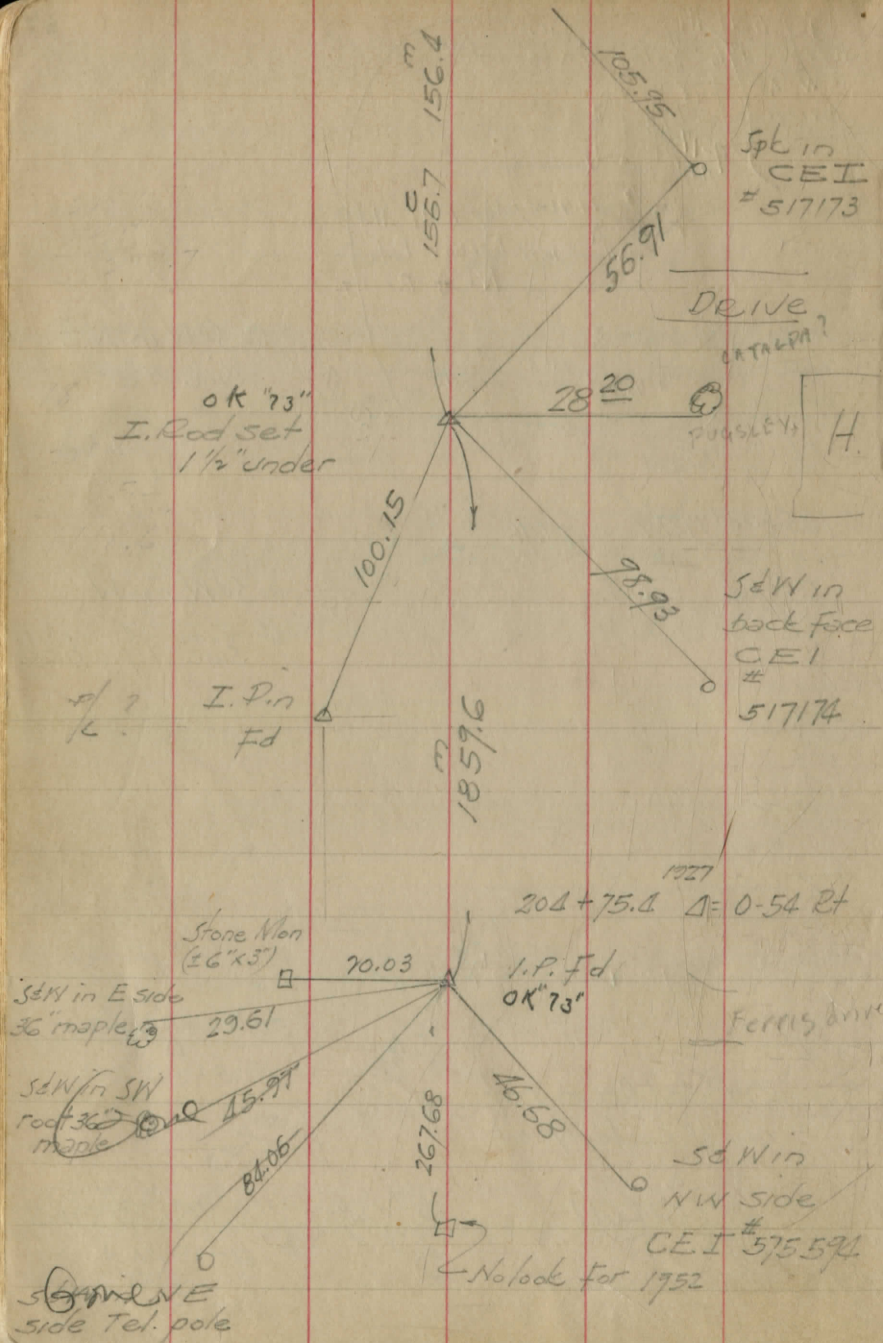 m
156.4
c
156.7
105.95
Spk in
CEI
# 517173
56.91
DRIVE
CATALPA?
28 20
OK "73"
I. Rod set
1 1/2" under
PUGSLEY
H.
100.15
98.93
S&W in
back face
CEI
#
517174
P/L ?
I. Pin
Fd
m
1859.6
1927
204 + 75.4 Δ= 0-54 Rt
Stone Mon
(±6"x3")
20.03
I.P. Fd
OK "73"
S&W in E side
36" maple
29.61
Ferris drive
S&W in SW
root 36"
maple
Gone
45.97
46.68
84.06
267.68
Sd W in
NW side
CEI # 575594
No look for 1952
Gone NE
side Tel. pole